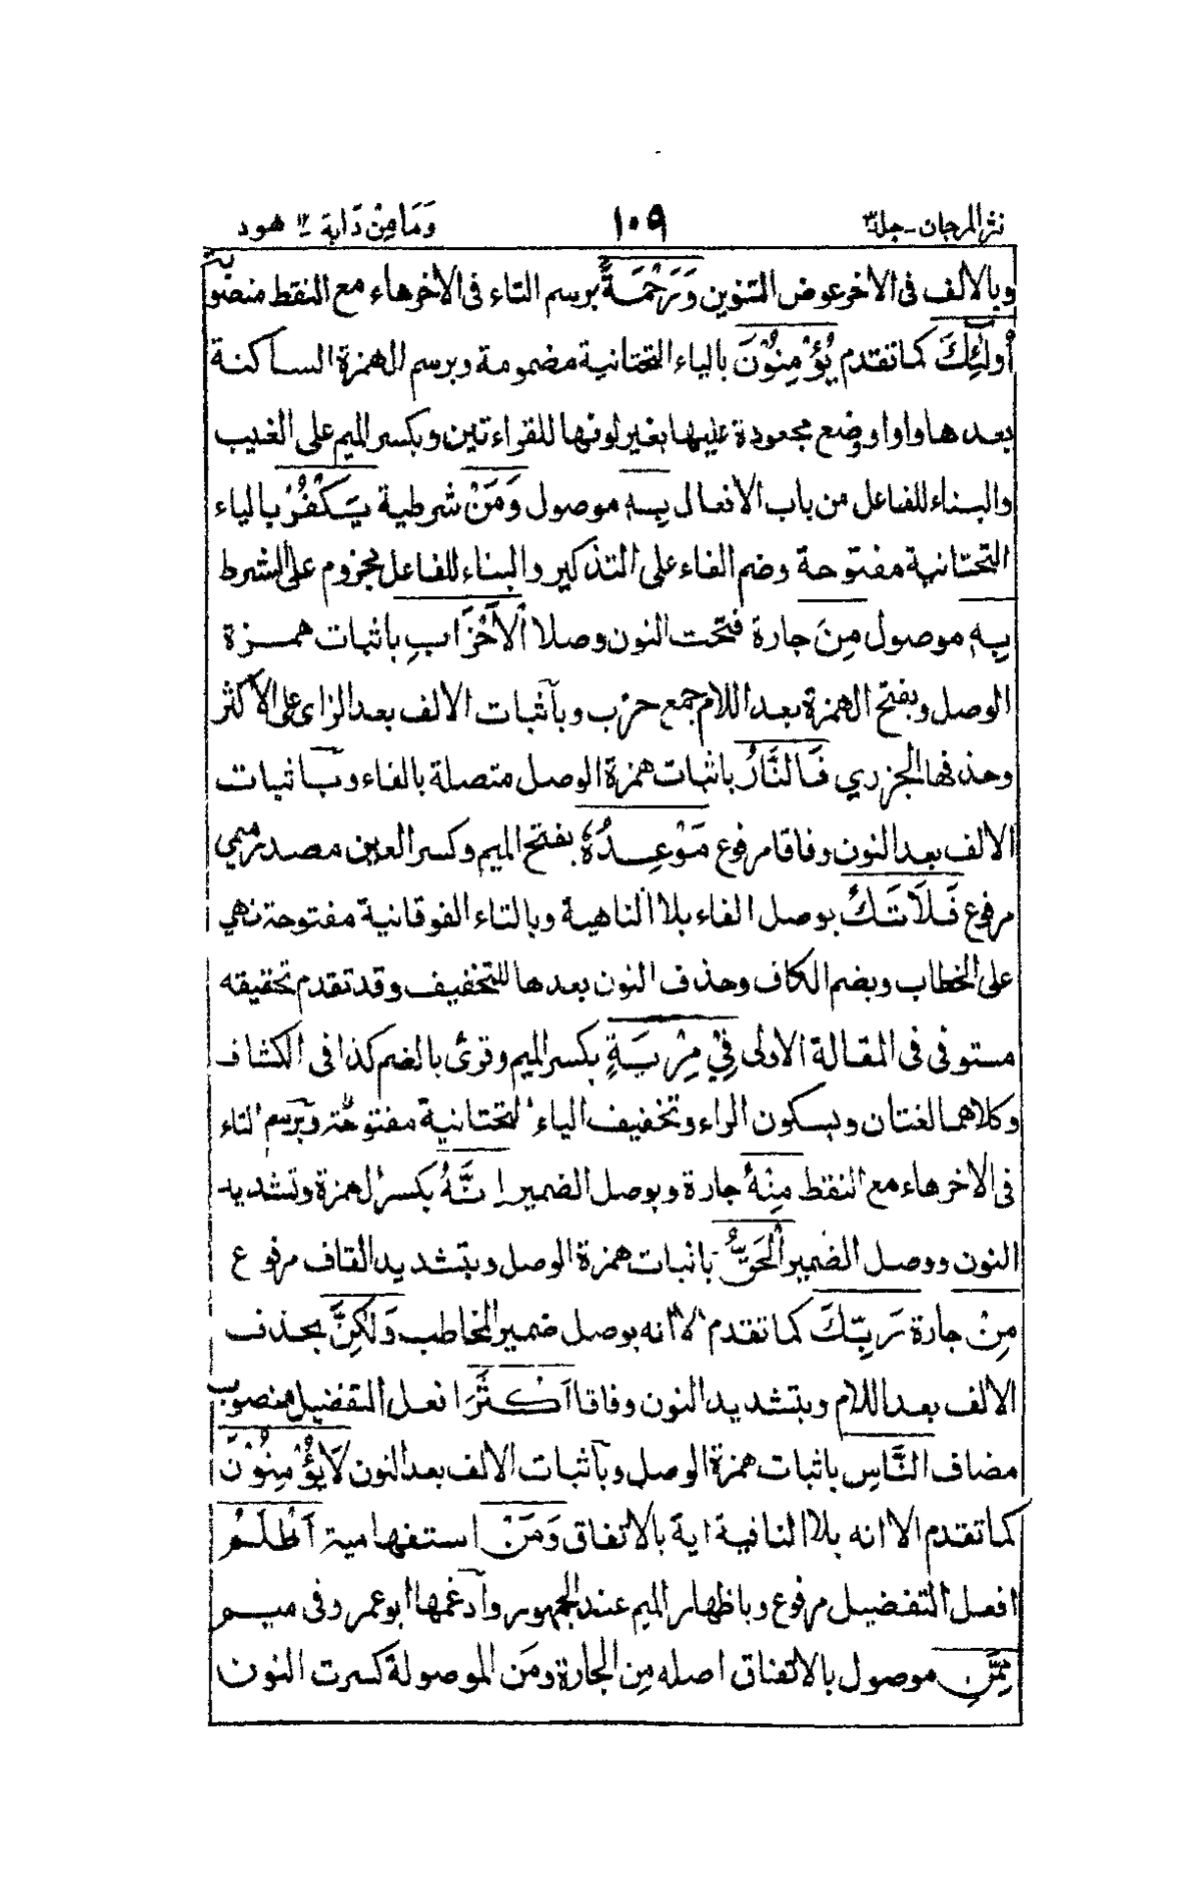 نثر المرجان - جلد٣ ١٠٩ وَمَا مِنْ دَابة ١٢ هود
وبالالف فى الاخر عوض التنوين وَرَحْمَةً برسم التاء فى الاخر هاء مع النقط منصوبة
أُولٰٓئِكَ كما تقدم يُؤْمِنُوْنَ بالياء التحتانية مضمومة وبرسم الهمزة الساكنة
بعدها واوا ووضع مجعودة عليها بغير لونها للقراءتين وبكسر الميم على الغيب
والبناء للفاعل من باب الافعال بِهٖ موصول وَمَنْ شرطية يَكْفُرْ بالياء
التحتانية مفتوحة وضم الفاء على التذكير والبناء للفاعل مجزوم على الشرط
بِهٖ موصول مِنَ جارة فتحت النون وصلا الْاَحْزَابِ باثبات همزة
الوصل وبفتح الهمزة بعد اللام جمع حزب وبآثبات الالف بعد الزاى على الاكثر
وحذفها الجزري فَالنَّارُ باثبات همزة الوصل متصلة بالفاء وبآثبات
الالف بعد النون وفاقا مرفوع مَوْعِدُهٗ بفتح الميم وكسر العين مصدر ميمي
مرفوع فَلَا تَكُ بوصل الفاء بلا الناهية وبالتاء الفوقانية مفتوحة نهي
على الخطاب وبضم الكاف وحذف النون بعدها للتخفيف وقد تقدم تحقيقه
مستوفى فى المقالة الاولى فِيْ مِرْيَةٍ بكسر الميم وقرئ بالضم كذا فى الكشاف
وكلاهما لغتان وبسكون الراء وتخفيف الياء التحتانية مفتوحة وبرسم التاء
فى الاخر هاء مع النقط مِنْهُ جارة وبوصل الضمير اِنَّهُ بكسر الهمزة وتشديد
النون ووصل الضمير الْحَقُّ باثبات همزة الوصل وبتشديد القاف مرفوع
مِنْ جارة رَبِّكَ كما تقدم الا انه بوصل ضمير المخاطب وَلٰكِنَّ بحذف
الالف بعد اللام وبتشديد النون وفاقا اَكْثَرَ افعل التفضيل منصوب
مضاف النَّاسِ باثبات همزة الوصل وبآثبات الالف بعد النون لَا يُؤْمِنُوْنَ
كما تقدم الا انه بلا النافية اية بالاتفاق وَمَنْ استفهامية اَظْلَمُ
افعل التفضيل مرفوع وباظهار الميم عند الجمهور وآدغمها ابو عمر وفى ميم
مِمَّنِ موصول بالاتفاق اصله مِن الجارة ومَن الموصولة كسرت النون